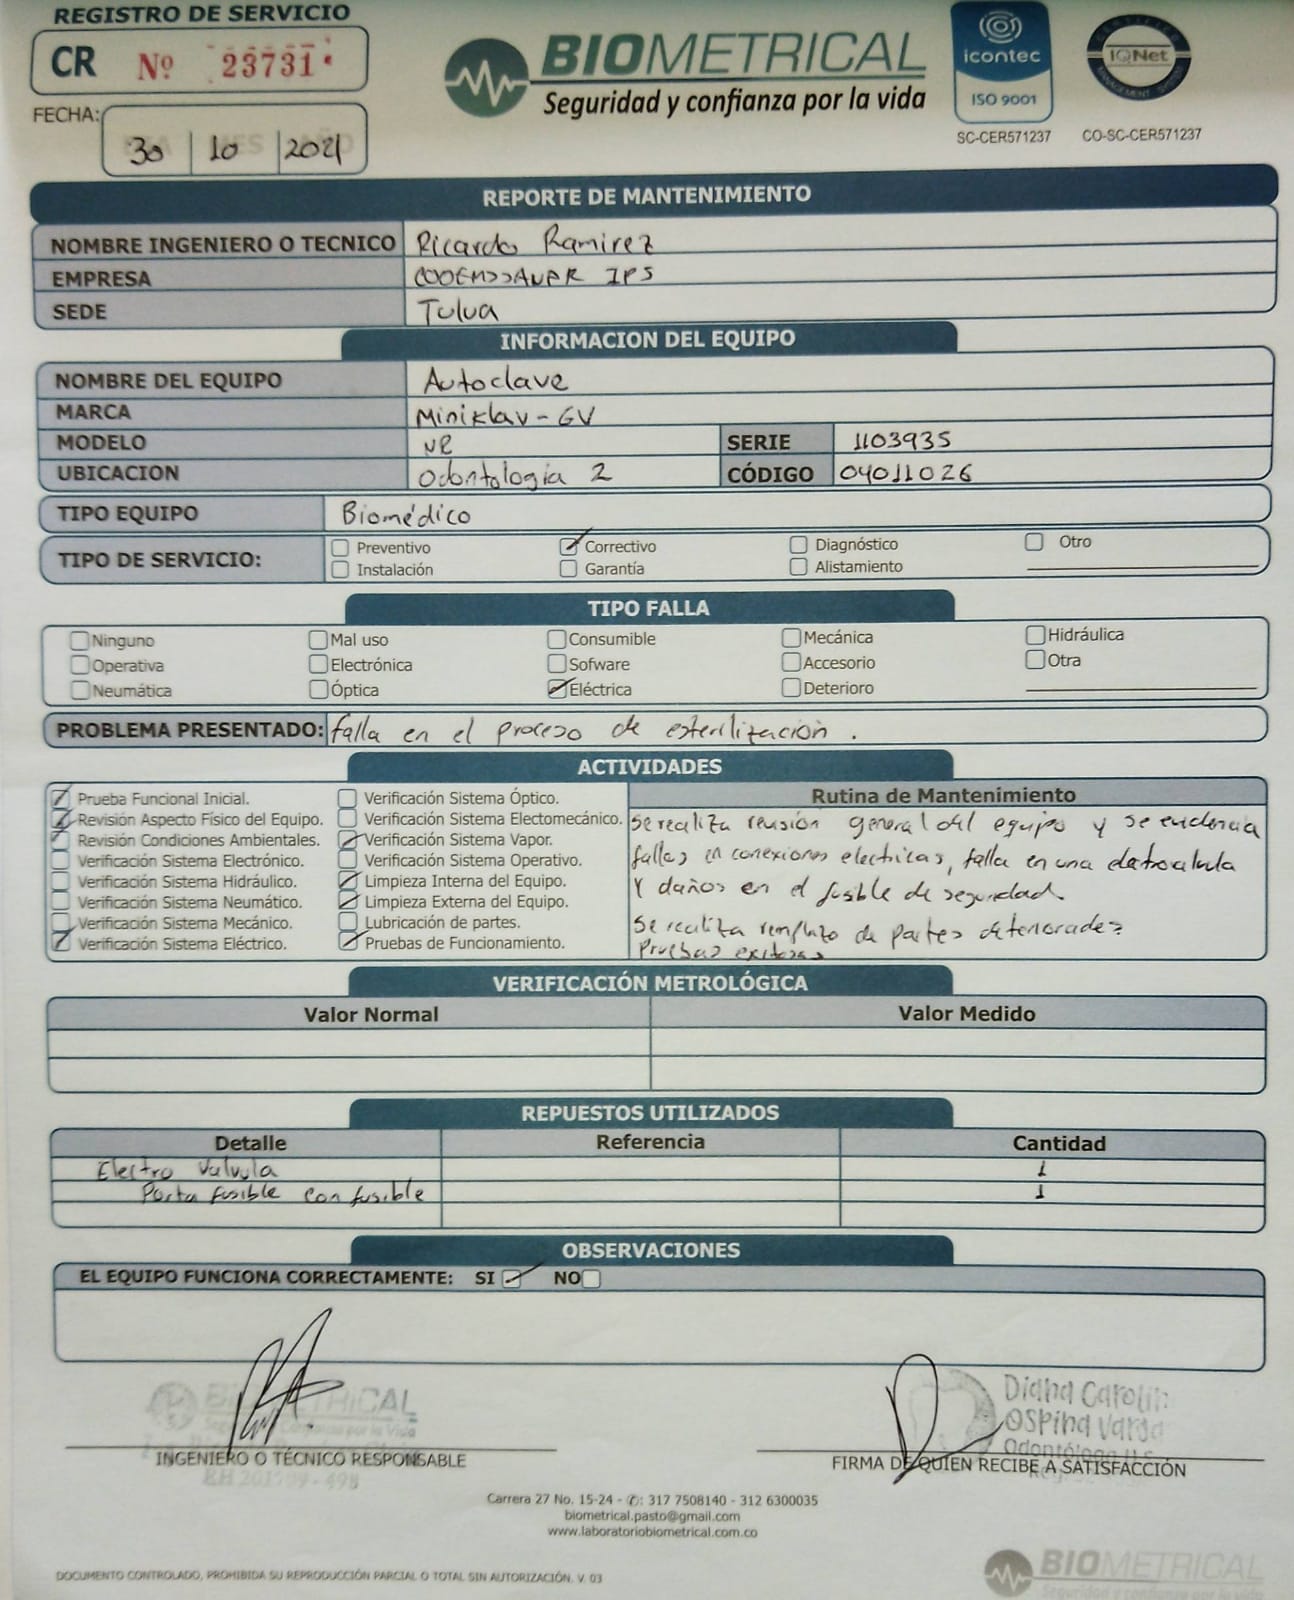 REGISTRO DE SERVICIO
CR Nº 23731
BIOMETRICAL
Seguridad y confianza por la vida
icontec
ISO 9001
SC-CER571237
IQNet
CO-SC-CER571237
FECHA: 30 10 2021
REPORTE DE MANTENIMIENTO
NOMBRE INGENIERO O TECNICO Ricardo Ramirez
EMPRESA IPS
SEDE Tulua
INFORMACION DEL EQUIPO
NOMBRE DEL EQUIPO Autoclave
MARCA Miniklav-GV
MODELO NR SERIE 1103935
UBICACION Odontologia 2 CÓDIGO 04011026
TIPO EQUIPO Biomédico
TIPO DE SERVICIO: Preventivo Correctivo Diagnóstico Otro
Instalación Garantía Alistamiento
TIPO FALLA
Ninguno Mal uso Consumible Mecánica Hidráulica
Operativa Electrónica Sofware Accesorio Otra
Neumática Óptica Eléctrica Deterioro
PROBLEMA PRESENTADO: falla en el proceso de esterilización.
ACTIVIDADES
Prueba Funcional Inicial.
Revisión Aspecto Físico del Equipo.
Revisión Condiciones Ambientales.
Verificación Sistema Electrónico.
Verificación Sistema Hidráulico.
Verificación Sistema Neumático.
Verificación Sistema Mecánico.
Verificación Sistema Eléctrico.
Verificación Sistema Óptico.
Verificación Sistema Electomecánico.
Verificación Sistema Vapor.
Verificación Sistema Operativo.
Limpieza Interna del Equipo.
Limpieza Externa del Equipo.
Lubricación de partes.
Pruebas de Funcionamiento.
Rutina de Mantenimiento
Se realiza revisión general del equipo y se evidencia
fallas en conexiones electricas, falla en una
y daños en el fusible de seguridad.
Se realiza remplazo de partes deterioradas
Pruebas exitosas
VERIFICACIÓN METROLÓGICA
Valor Normal Valor Medido
REPUESTOS UTILIZADOS
Detalle Referencia Cantidad
Electro Valvula 1
Porta fusible con fusible 1
OBSERVACIONES
EL EQUIPO FUNCIONA CORRECTAMENTE: SI NO
Diana Carolin
Ospina Varga
INGENIERO O TÉCNICO RESPONSABLE
FIRMA DE QUIEN RECIBE A SATISFACCIÓN
Carrera 27 No. 15-24 - ✆: 317 7508140 - 312 6300035
biometrical.pasto@gmail.com
www.laboratoriobiometrical.com.co
DOCUMENTO CONTROLADO, PROHIBIDA SU REPRODUCCIÓN PARCIAL O TOTAL SIN AUTORIZACIÓN. V. 03
BIOMETRICAL
Seguridad y confianza por la vida